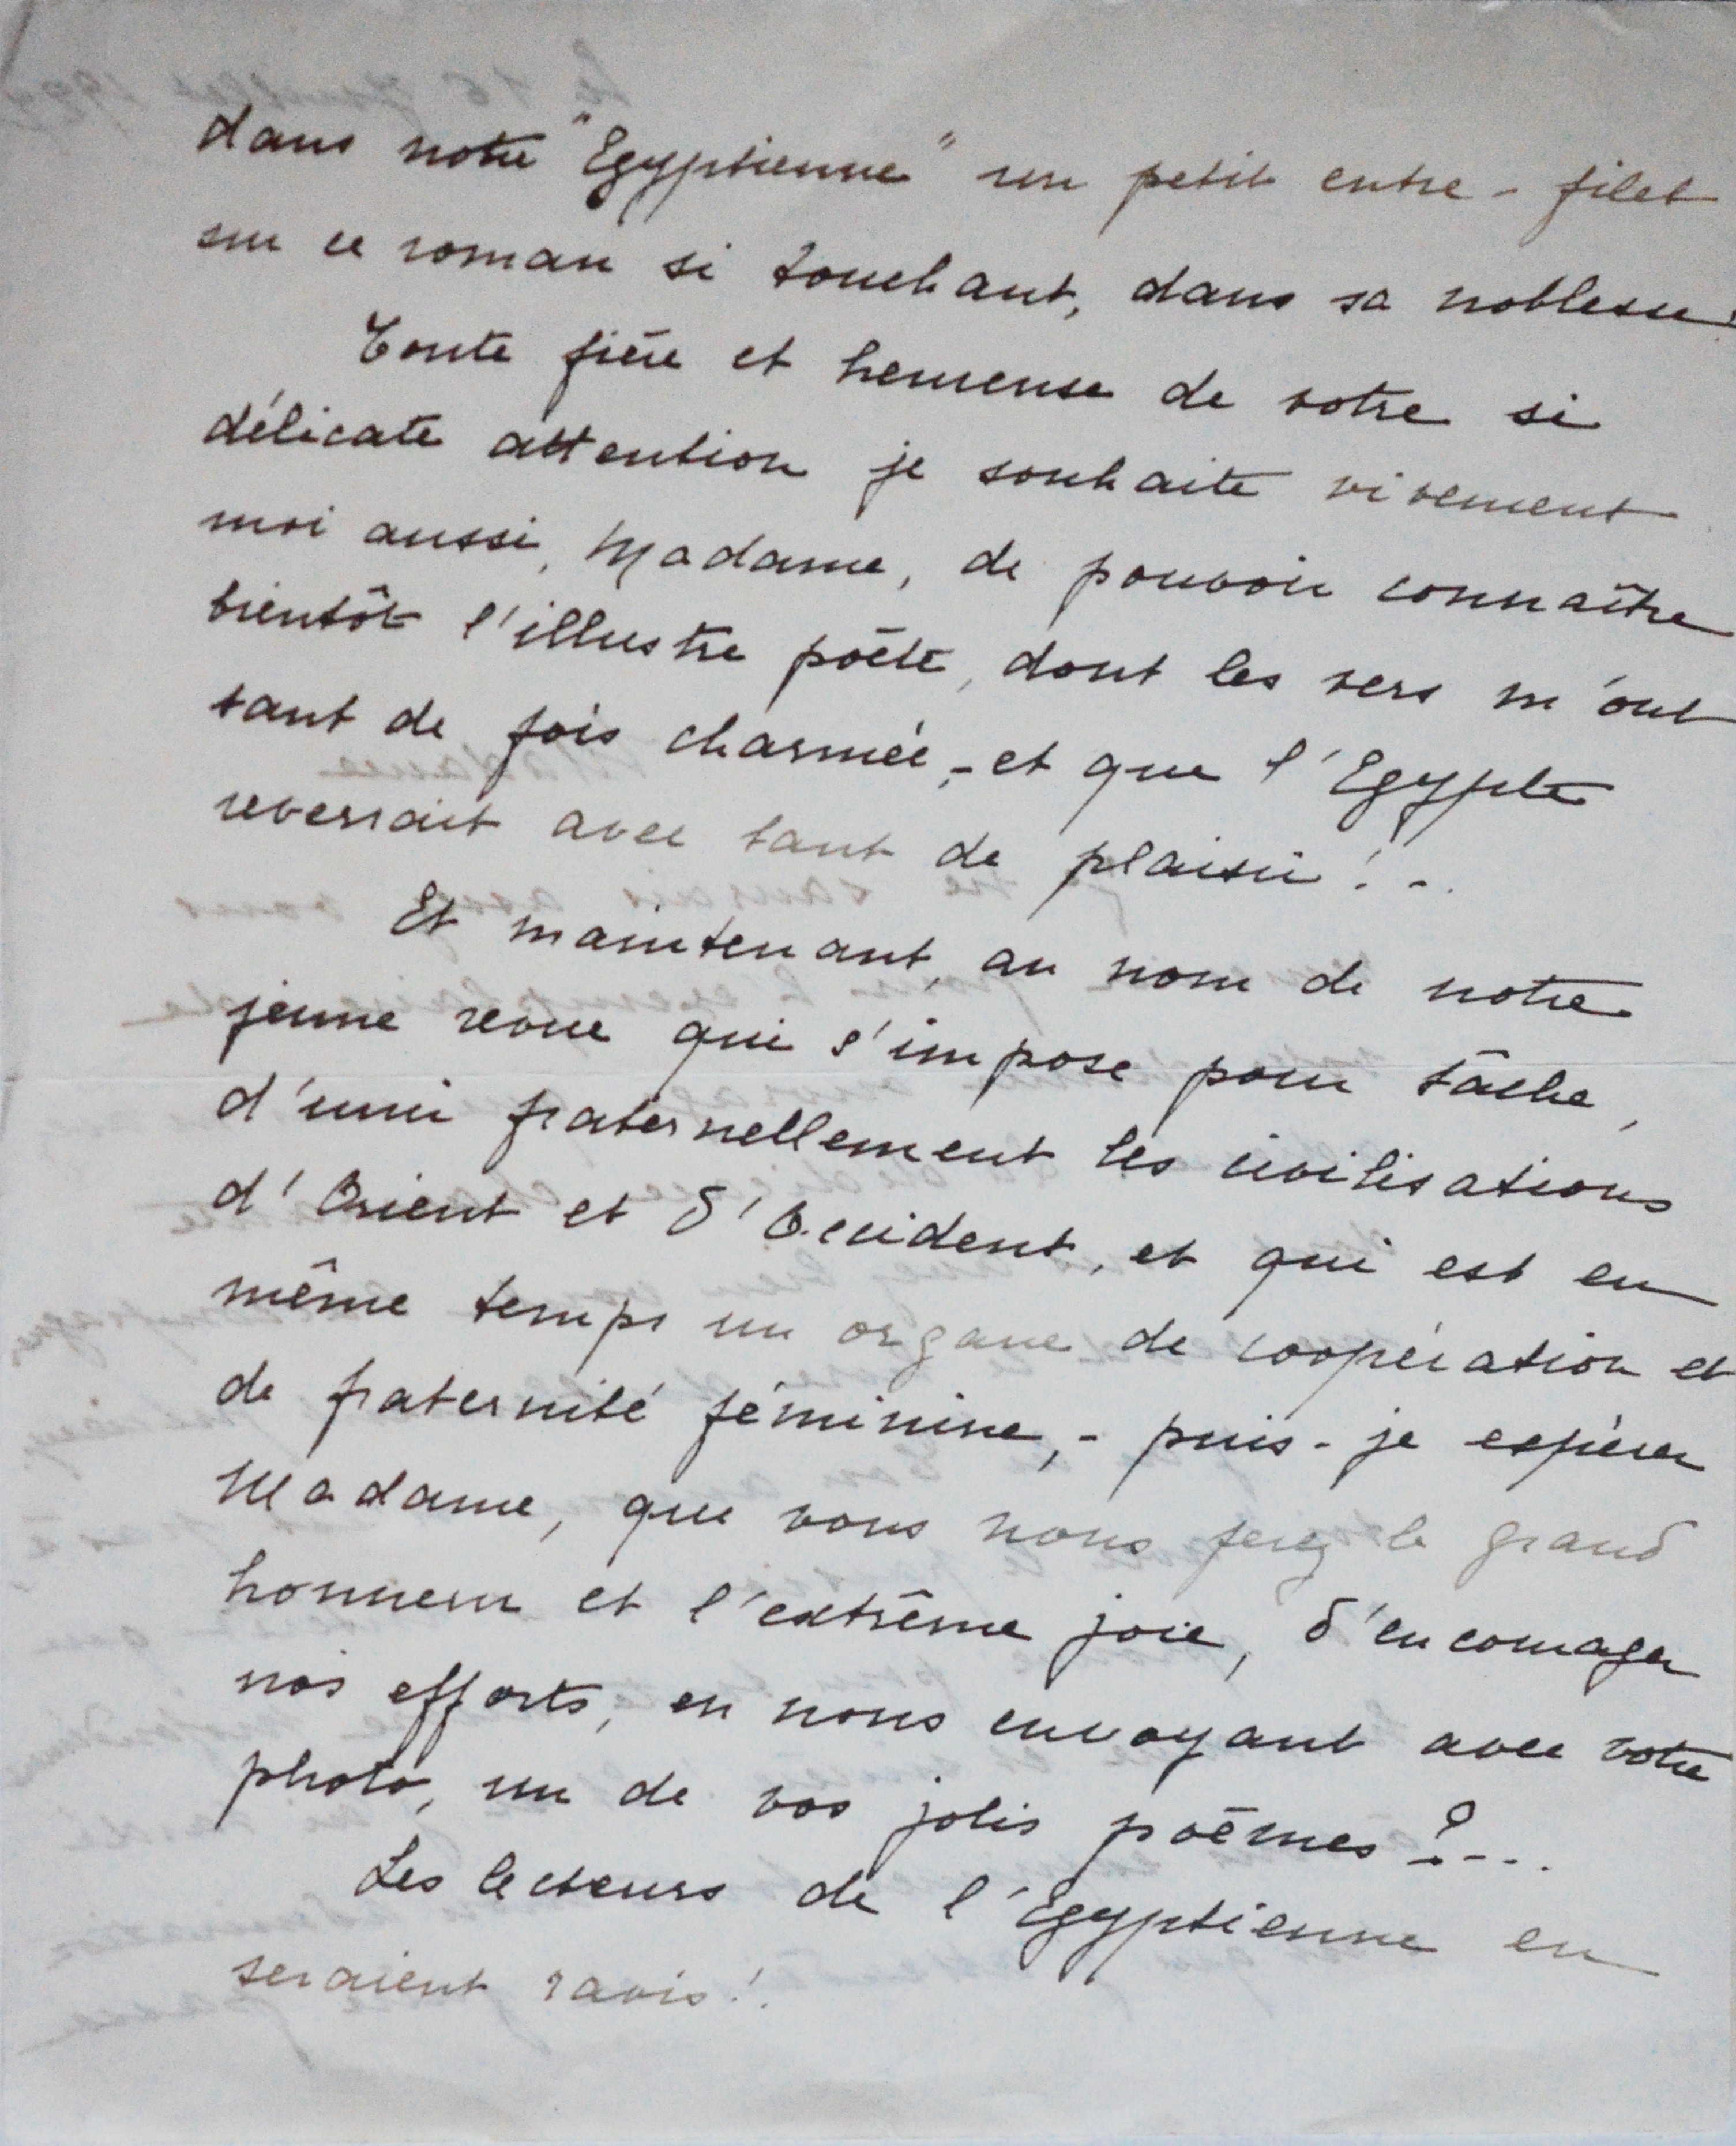 dans notre "Egyptienne" un petit entre-filet
sur ce roman si touchant, dans sa noblesse.
Toute fière et heureuse de votre si
délicate attention je souhaite vivement
moi aussi, Madame, de pouvoir connaître
bientôt l'illustre poète, dont les vers m'ont
tant de fois charmée, - et que l'Egypte
reverrait avec tant de plaisir!..
Et maintenant, au nom de notre
jeune revue qui s'impose pour tâche,
d'unir fraternellement les civilisations
d'Orient et d'Occident, et qui est en
même temps un organe de coopération et
de fraternité féminine, - puis-je espérer
Madame, que vous nous ferez le grand
honneur et l'extrême joie, d'encourager
nos efforts, en nous envoyant avec votre
photo, un de vos jolis poèmes?...
Les lecteurs de l'Egyptienne en
seraient ravis!.